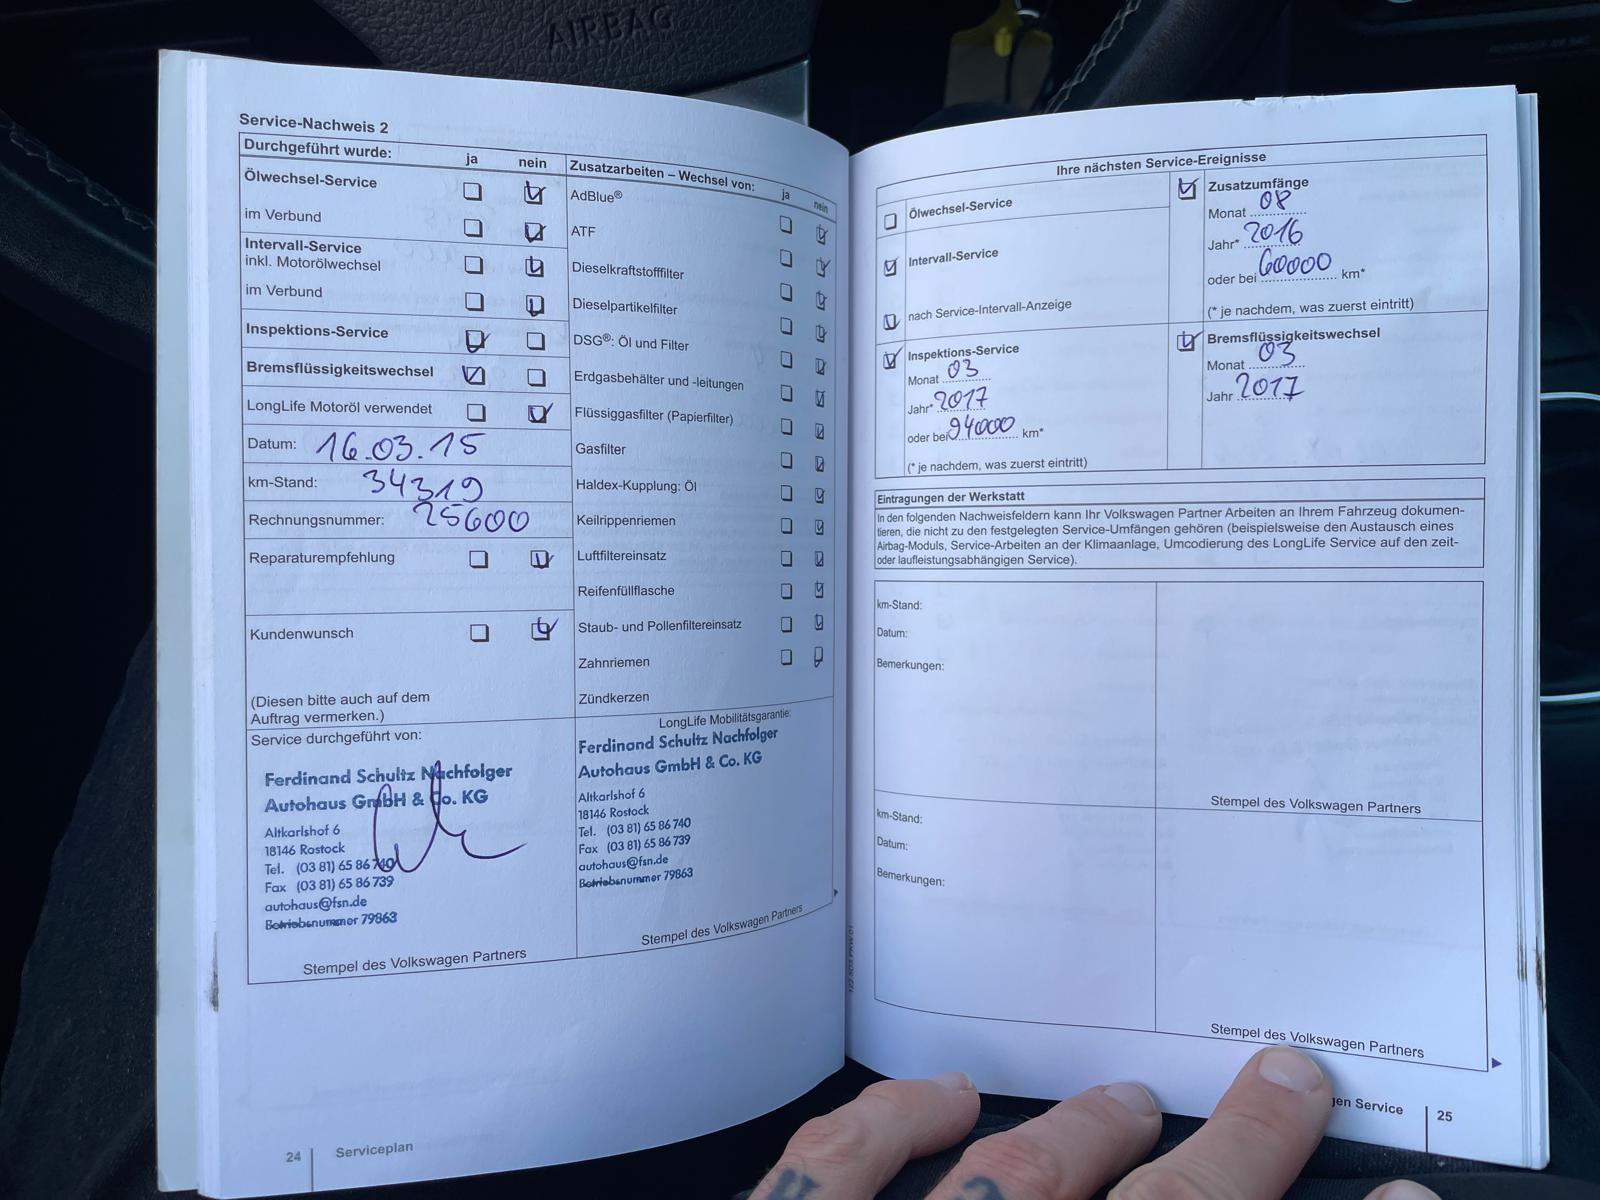 AIRBAG
Service-Nachweis 2
Durchgeführt wurde: ja nein
Ölwechsel-Service
im Verbund
Intervall-Service
inkl. Motorölwechsel
im Verbund
Inspektions-Service
Bremsflüssigkeitswechsel
LongLife Motoröl verwendet
Datum: 16.03.15
km-Stand: 34319
Rechnungsnummer: 25600
Reparaturempfehlung
Kundenwunsch
(Diesen bitte auch auf dem
Auftrag vermerken.)
Service durchgeführt von:
Ferdinand Schultz Nachfolger
Autohaus GmbH & Co. KG
Altkarlshof 6
18146 Rostock
Tel. (03 81) 65 86 740
Fax (03 81) 65 86 739
autohaus@fsn.de
Betriebsnummer 79863
Stempel des Volkswagen Partners
Zusatzarbeiten – Wechsel von: ja nein
AdBlue®
ATF
Dieselkraftstofffilter
Dieselpartikelfilter
DSG®: Öl und Filter
Erdgasbehälter und -leitungen
Flüssiggasfilter (Papierfilter)
Gasfilter
Haldex-Kupplung: Öl
Keilrippenriemen
Luftfiltereinsatz
Reifenfüllflasche
Staub- und Pollenfiltereinsatz
Zahnriemen
Zündkerzen
LongLife Mobilitätsgarantie:
Ferdinand Schultz Nachfolger
Autohaus GmbH & Co. KG
Altkarlshof 6
18146 Rostock
Tel. (03 81) 65 86 740
Fax (03 81) 65 86 739
autohaus@fsn.de
Betriebsnummer 79863
Stempel des Volkswagen Partners
24 Serviceplan
Ihre nächsten Service-Ereignisse
Ölwechsel-Service
Intervall-Service
nach Service-Intervall-Anzeige
Inspektions-Service
Monat 03
Jahr* 2017
oder bei 94000 km*
(* je nachdem, was zuerst eintritt)
Zusatzumfänge
Monat 08
Jahr* 2016
oder bei 60000 km*
(* je nachdem, was zuerst eintritt)
Bremsflüssigkeitswechsel
Monat 03
Jahr 2017
Eintragungen der Werkstatt
In den folgenden Nachweisfeldern kann Ihr Volkswagen Partner Arbeiten an Ihrem Fahrzeug dokumen-
tieren, die nicht zu den festgelegten Service-Umfängen gehören (beispielsweise den Austausch eines
Airbag-Moduls, Service-Arbeiten an der Klimaanlage, Umcodierung des LongLife Service auf den zeit-
oder laufleistungsabhängigen Service).
km-Stand:
Datum:
Bemerkungen:
Stempel des Volkswagen Partners
km-Stand:
Datum:
Bemerkungen:
Stempel des Volkswagen Partners
gen Service 25